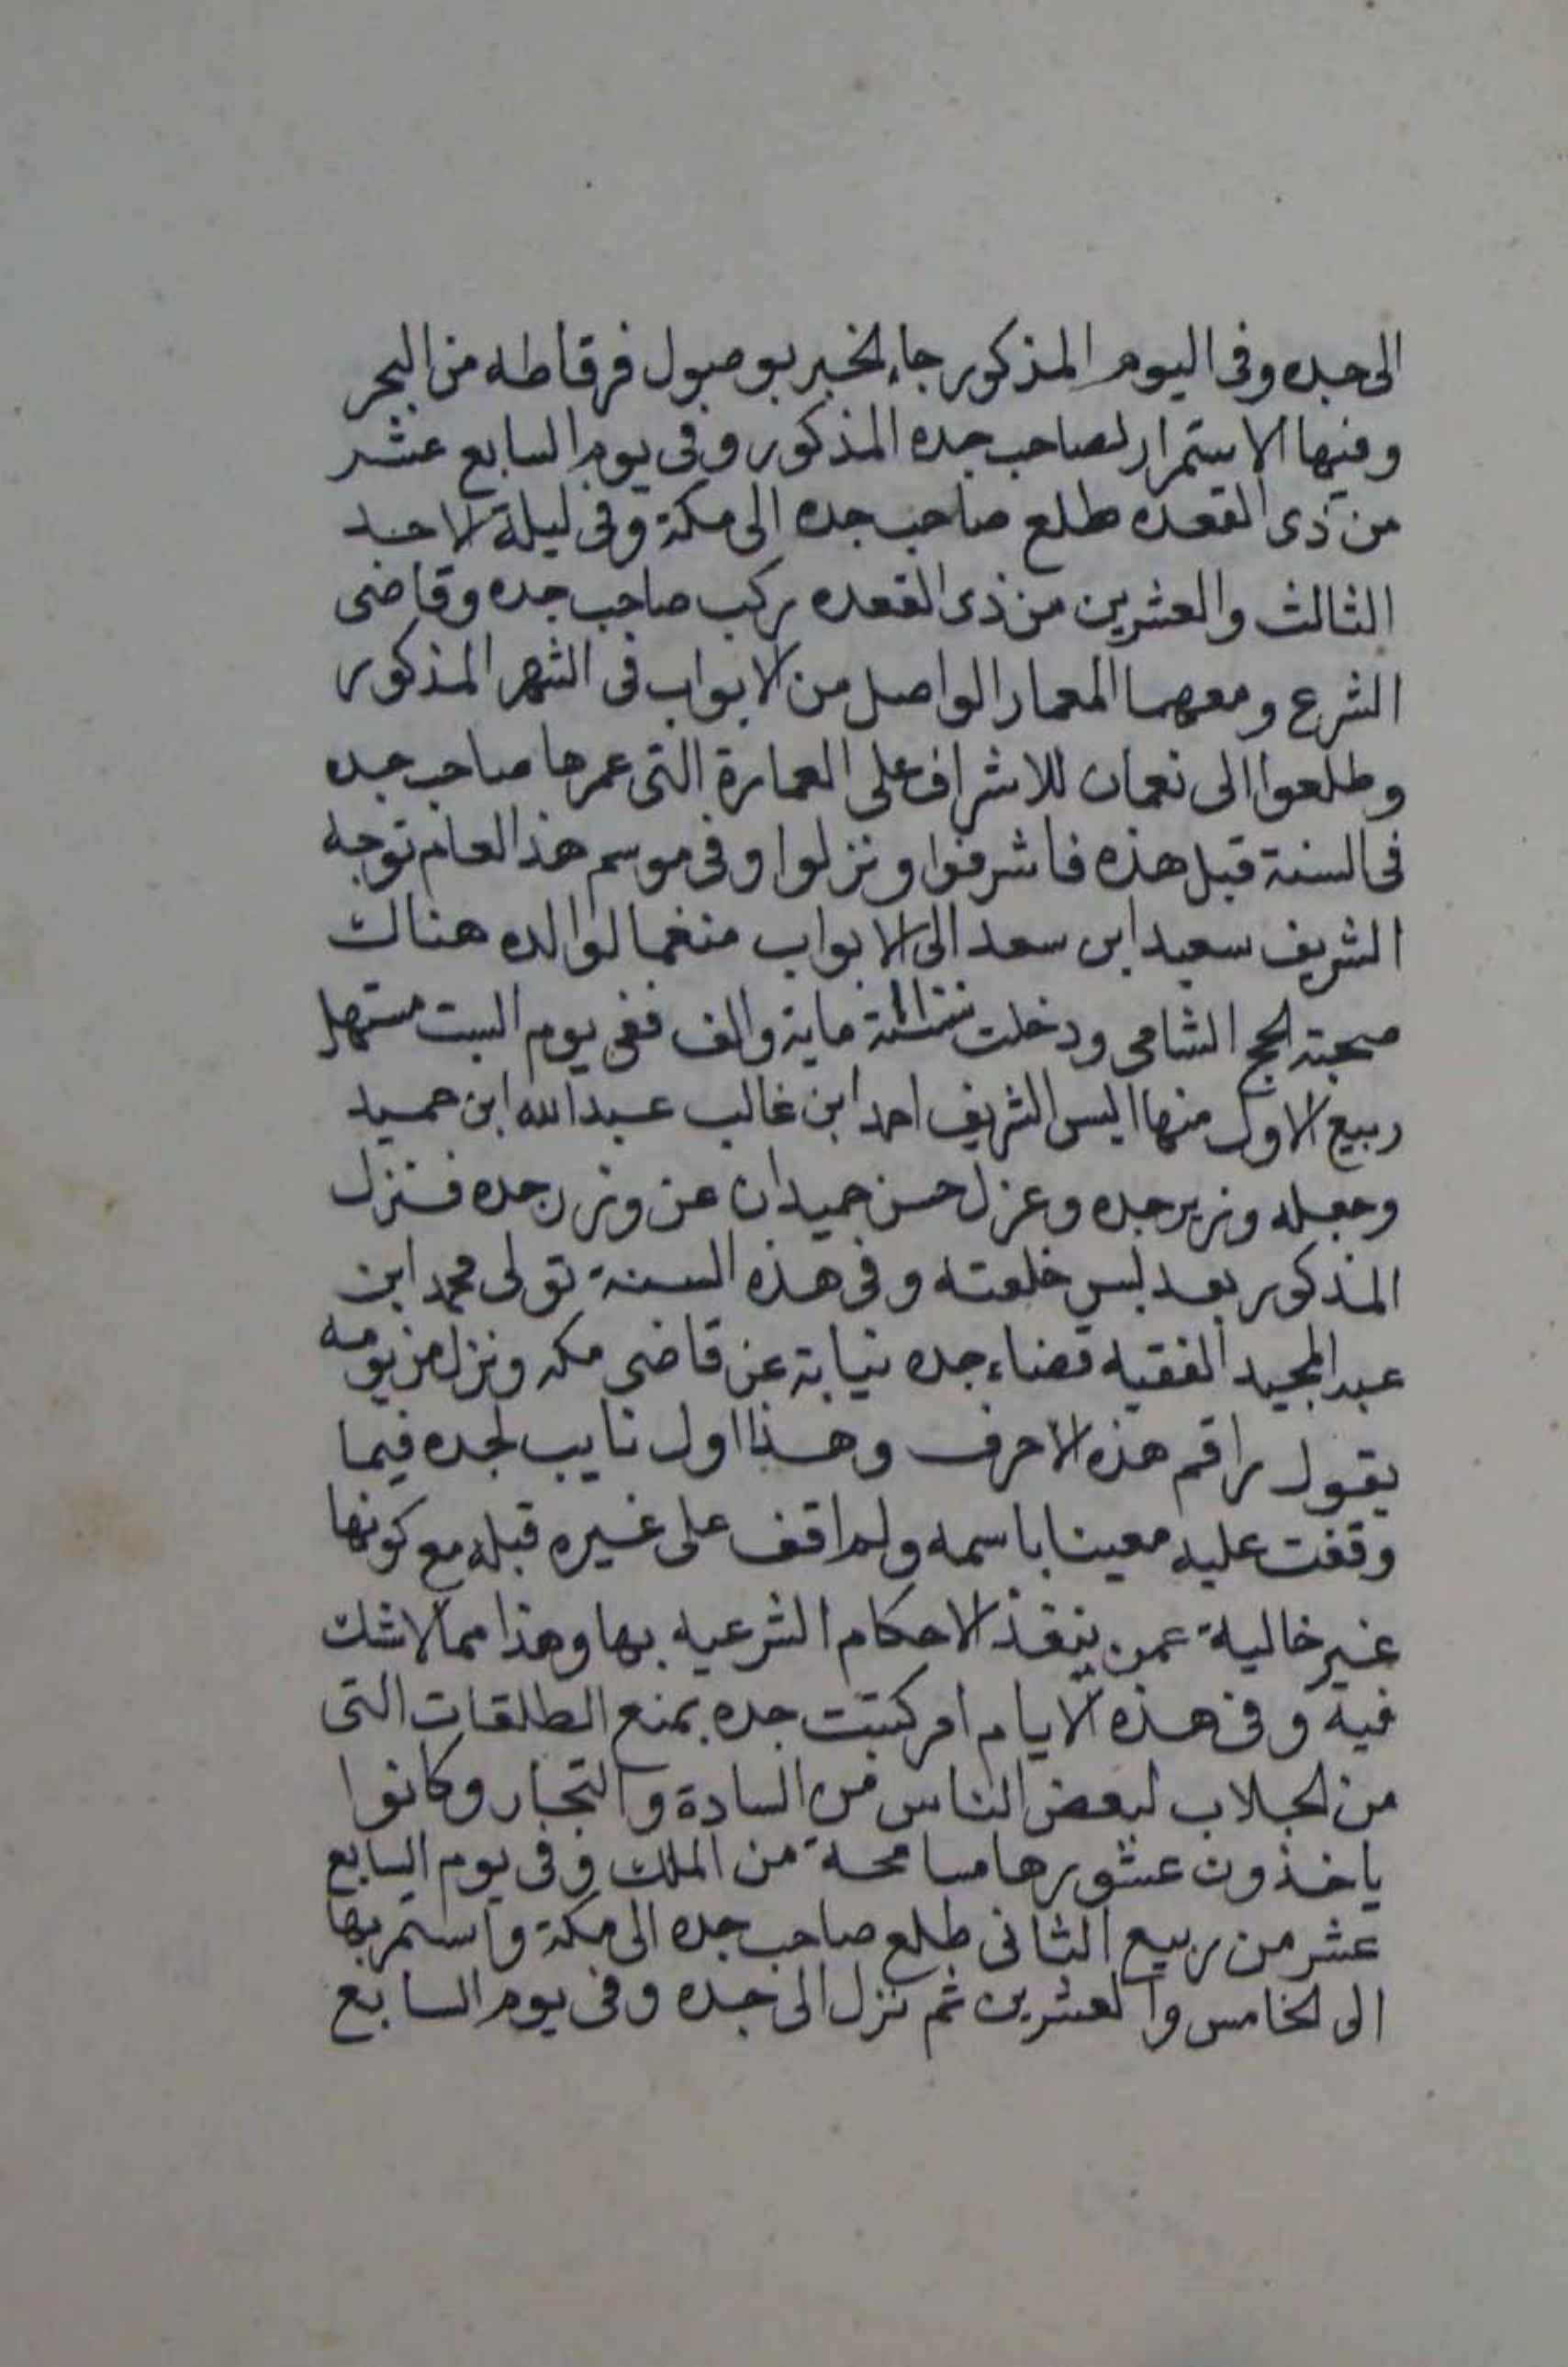 الى جده وفى اليوم المذكور جاء الخبر بوصول فرقاطه من البحر
وفيها الاستمرار لصاحب جده المذكور وفى يوم السابع عشر
من ذى القعده طلع صاحب جده الى مكة وفى ليلة الاحد
الثالث والعشرين من ذى القعده ركب صاحب جده وقاضى
الشرع ومعهما المعمار الواصل من الابواب فى الشهر المذكور
وطلعوا الى نعمان للاشراف على العمارة التى عمرها صاحب جده
فى السنة قبل هذه فاشرفوا ونزلوا وفى موسم هذا العام توجه
الشريف سعيد ابن سعد الى الابواب منغما لوالده هناك
صحبة الحج الشامى ودخلت ماية والف ففى يوم السبت مستهل
ربيع الاول منها البس الشريف احمد ابن غالب عبد الله ابن حميد
وجعله وزير جده وعزل حسن حميدان عن وزر جده فنزل
المذكور بعد لبس خلعته وفى هذه السنة تولى محمد ابن
عبد المجيد الفقيه قضاء جده نيابة عن قاضى مكه ونزل من يومه
يقول راقم هذه الاحرف وهذا اول نايب لجده فيما
وقفت عليه معينا باسمه ولم اقف على غيره قبله مع كونها
غير خالية عمن ينفذ الاحكام الشرعيه بها وهذا مما لا شك
فيه وفى هذه الايام امر كتبت جده بمنع الطلقات التى
من الجلاب لبعض الناس من السادة والتجار وكانوا
ياخذون عشورها مسامحة من الملك وفى يوم السابع
عشر من ربيع الثانى طلع صاحب جده الى مكة واستمر بها
الى الخامس والعشرين ثم نزل الى جده وفى يوم السابع